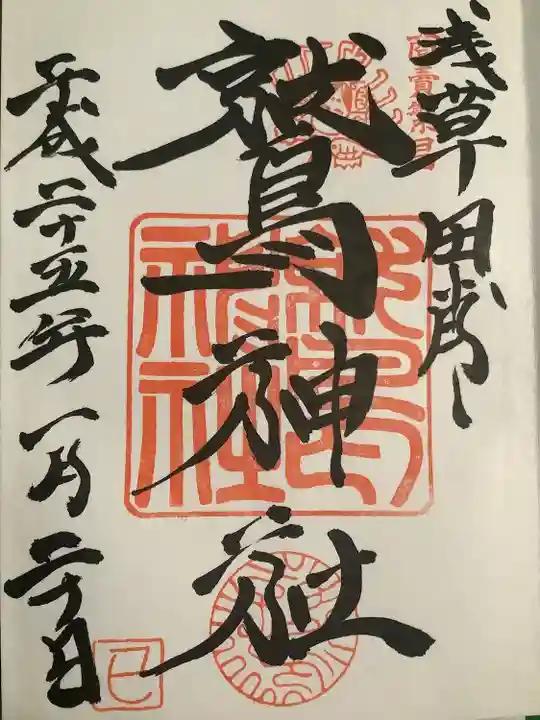 浅草田甫
鷲神社
平成二十五年一月二十日
鷲神社
巳